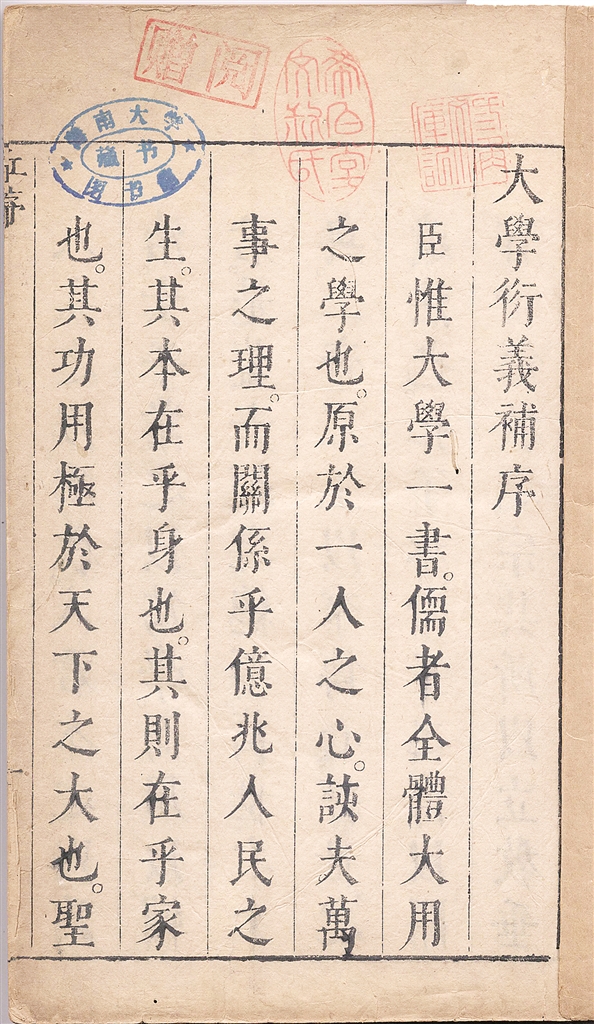 大學衍義補序
臣惟大學一書。儒者全體大用
之學也。原於一人之心。該夫萬
事之理。而關係乎億兆人民之
生。其本在乎身也。其則在乎家
也。其功用極於天下之大也。聖
序
贈閱
南大學
藏书
图书馆